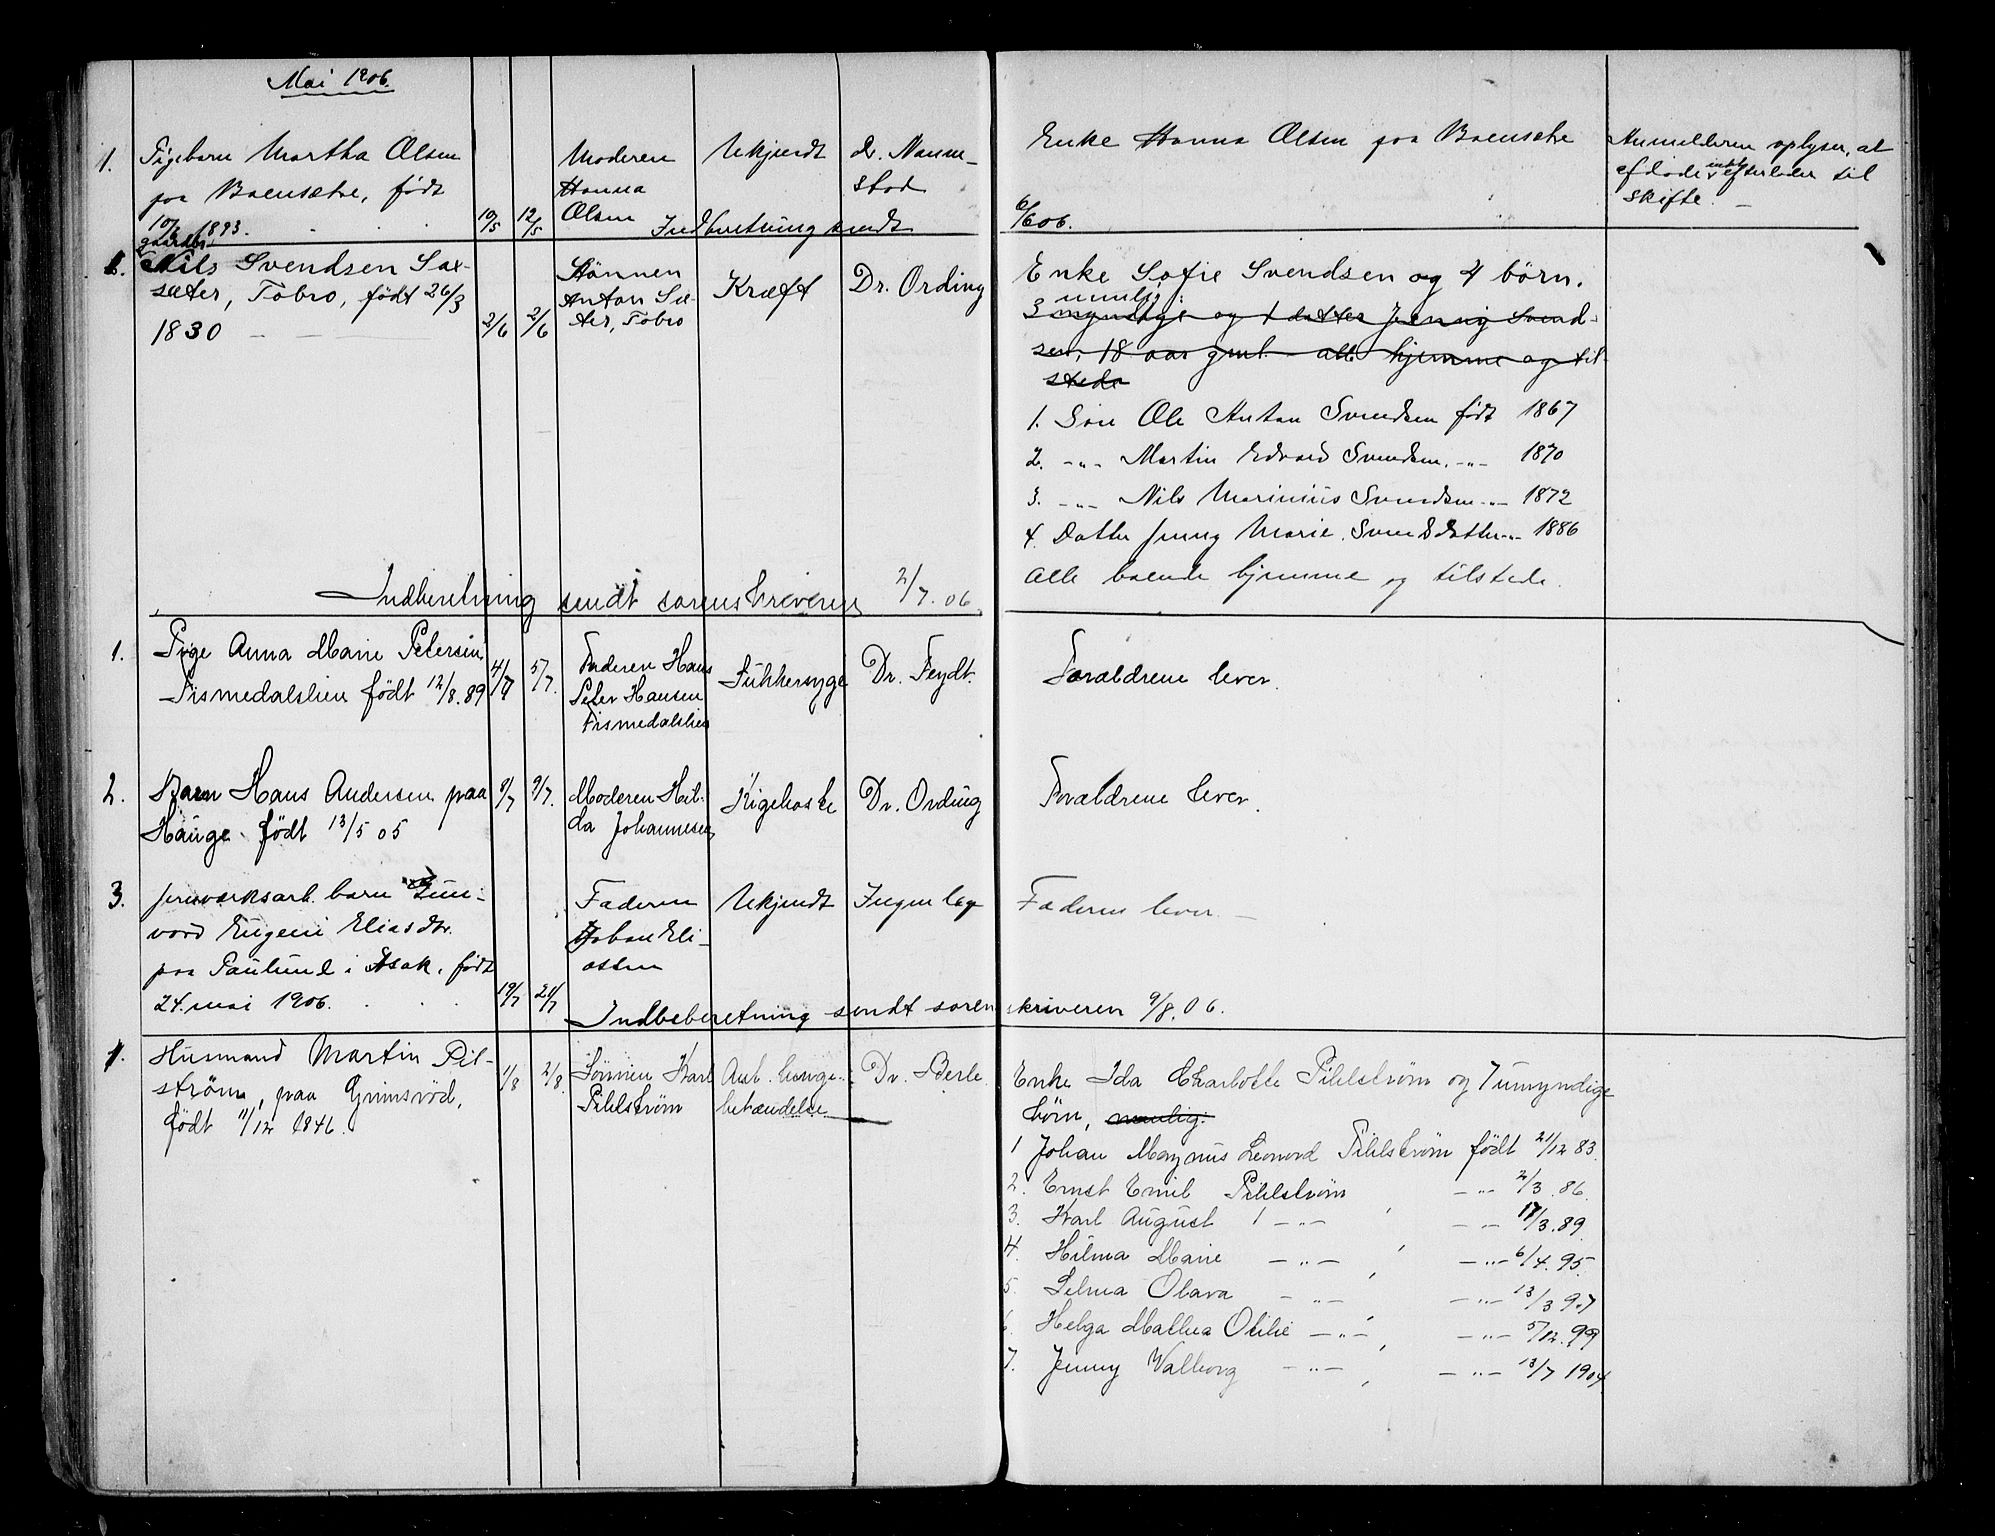 Mai 1906.
1. Pigebarn Martha Olsen
paa Baensætre, født
10/6 1893.
10/5
12/5
Moderen
Hanna
Olsen
Ukjendt
dr. Nanne-
stad
Enke Hanna Olsen paa Baensætre
Anmelderen oplyser, at
afdøde intet efterlader til
skifte.
Indberetning sendt
6/6 06.
gaardbr.
1. Nils Svendsen Sax-
sæter, Tobro, født 26/3
1830
2/6
2/6
Sønnen
Anton Sæ-
ter, Tobro
Kræft
Dr. Ording
Enke Sofie Svendsen og 4 børn.
nemlig:
3 myndige og 1 datter Jenny Svend-
sen, 18 aar gml. alle hjemme og til-
stede
1. Søn Ole Anton Svendsen født 1867
2. -"- Martin Edvard Svendsen. -"- 1870
3. -"- Nils Marinius Svendsen -"- 1872
4. Datter Jenny Marie Svendsdatter -"- 1886
Alle boende hjemme og tilstede.
Indberetning sendt sorenskriveren 2/7. 06.
1. Pige Anna Marie Petersen
Tismedalslien født 12/8. 89
4/7
5/7.
Faderen Hans
Peter Hansen
Tismedalslien
Sukkersyge
Dr. Feydt.
Forældrene lever.
2. Barn Hans Andersen paa
Hauge født 13/5 05
9/7
9/7.
Moderen Hil-
da Johannesen
Kighoste
Dr. Ording
Forældrene lever.
3. jernværksarb. barn Gun-
vord Eugeni Eliasdtr.
paa Paulund i Asak, født
24. mai 1906.
19/7
21/7
Faderen
Johan Eli-
assen
Ukjendt
Ingen læge
Faderen lever. -
Indbeberetning sendt sorenskriveren 9/8. 06.
1. Husmand Martin Pil-
strøm, paa Grimsrød,
født 11/12 1846.
1/8
2/8.
Sønnen Karl
Pihlstrøm
Aut. lunge-
betændelse
Dr. Berle.
Enke Ida Charlotte Pihlstrøm og 7 umyndige
børn, nemlig:
1 Johan Magnus Leonord Pihlstrøm født 21/12 83.
2. Ernst Emil Pihlstrøm -"- 2/3. 86.
3. Karl August -"- -"- 17/3. 89.
4. Hilma Marie -"- -"- 6/4. 95.
5. Selma Olava -"- -"- 13/3 97
6. Helga Mathea Otilie -"- -"- 5/12. 99
7. Jenny Walborg -"- -"- 13/7 1904